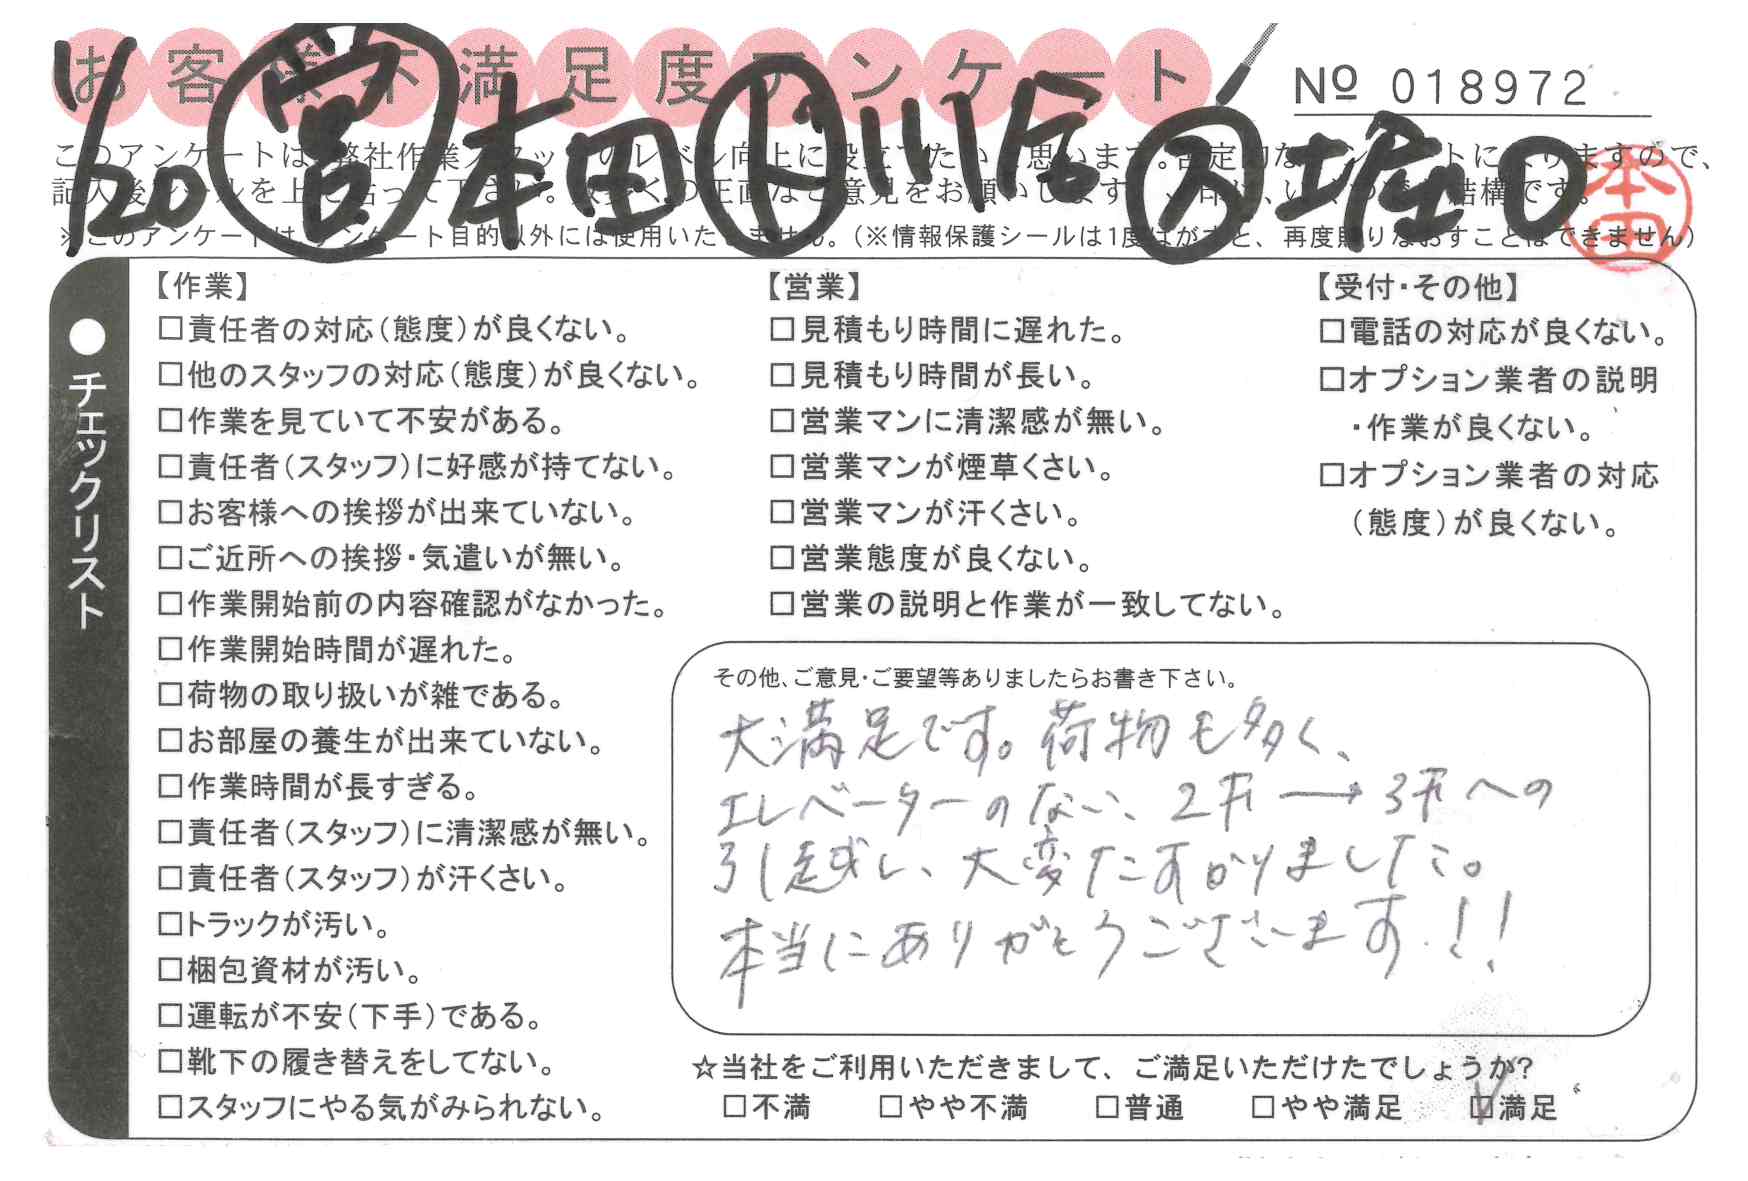 お客様不満足度アンケート
№ 018972
1/20 営 本田 ド 川合 ス 堀 0
本田
※このアンケートは、アンケート目的以外には使用いたしません。(※情報保護シールは1度はがすと、再度貼りなおすことはできません)
●チェックリスト
【作業】
□責任者の対応(態度)が良くない。
□他のスタッフの対応(態度)が良くない。
□作業を見ていて不安がある。
□責任者(スタッフ)に好感が持てない。
□お客様への挨拶が出来ていない。
□ご近所への挨拶・気遣いが無い。
□作業開始前の内容確認がなかった。
□作業開始時間が遅れた。
□荷物の取り扱いが雑である。
□お部屋の養生が出来ていない。
□作業時間が長すぎる。
□責任者(スタッフ)に清潔感が無い。
□責任者(スタッフ)が汗くさい。
□トラックが汚い。
□梱包資材が汚い。
□運転が不安(下手)である。
□靴下の履き替えをしてない。
□スタッフにやる気がみられない。
【営業】
□見積もり時間に遅れた。
□見積もり時間が長い。
□営業マンに清潔感が無い。
□営業マンが煙草くさい。
□営業マンが汗くさい。
□営業態度が良くない。
□営業の説明と作業が一致してない。
【受付・その他】
□電話の対応が良くない。
□オプション業者の説明
・作業が良くない。
□オプション業者の対応
(態度)が良くない。
その他、ご意見・ご要望等ありましたらお書き下さい。
大満足です。荷物も多く、
エレベーターのない、2F→3Fへの
引越し、大変たすかりました。
本当にありがとうございます!!
☆当社をご利用いただきまして、ご満足いただけたでしょうか?
□不満 □やや不満 □普通 □やや満足 ☑満足